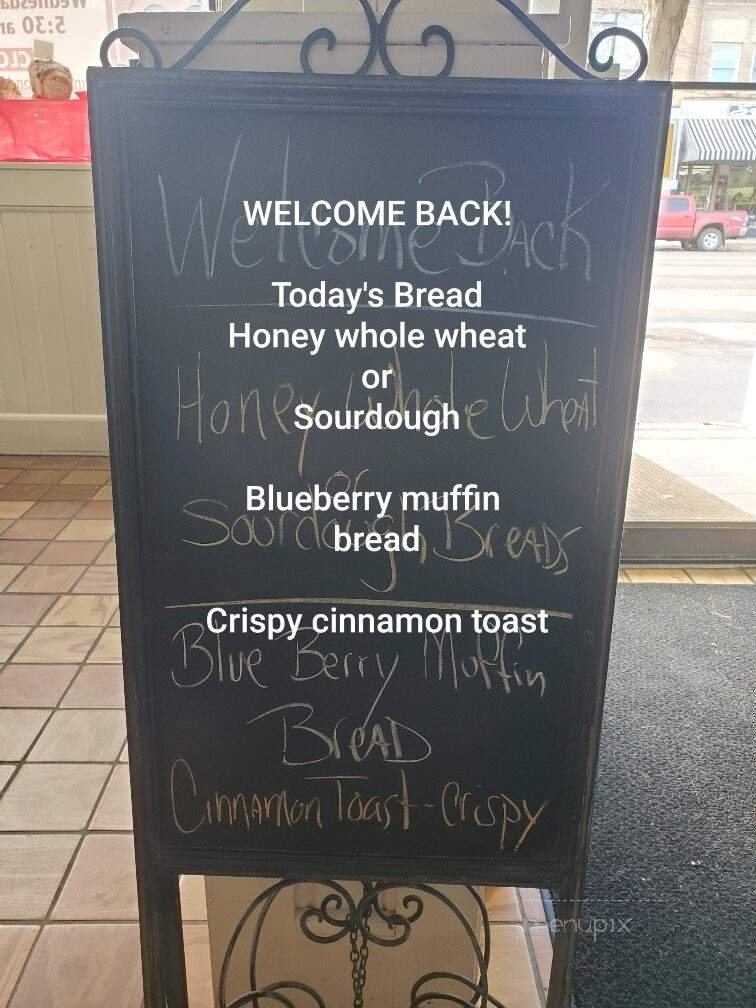 Wednesday
5:30 a
WELCOME BACK!
Today's Bread
Honey whole wheat
or
Sourdough
Blueberry muffin
bread
Crispy cinnamon toast
Welcome Back
Honey Whole Wheat
or
Sourdough Breads
Blue Berry Muffin
Bread
Cinnamon Toast - Crispy
menupix